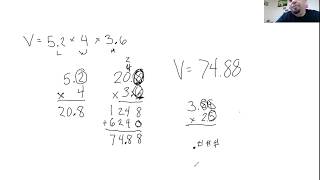 V = 5.2 × 4 × 3.6
L W H
5.2
× 4
20.8
2
4
20.8
× 3.6
1248
+ 6240
74.88
V = 74.88
× 2
.###